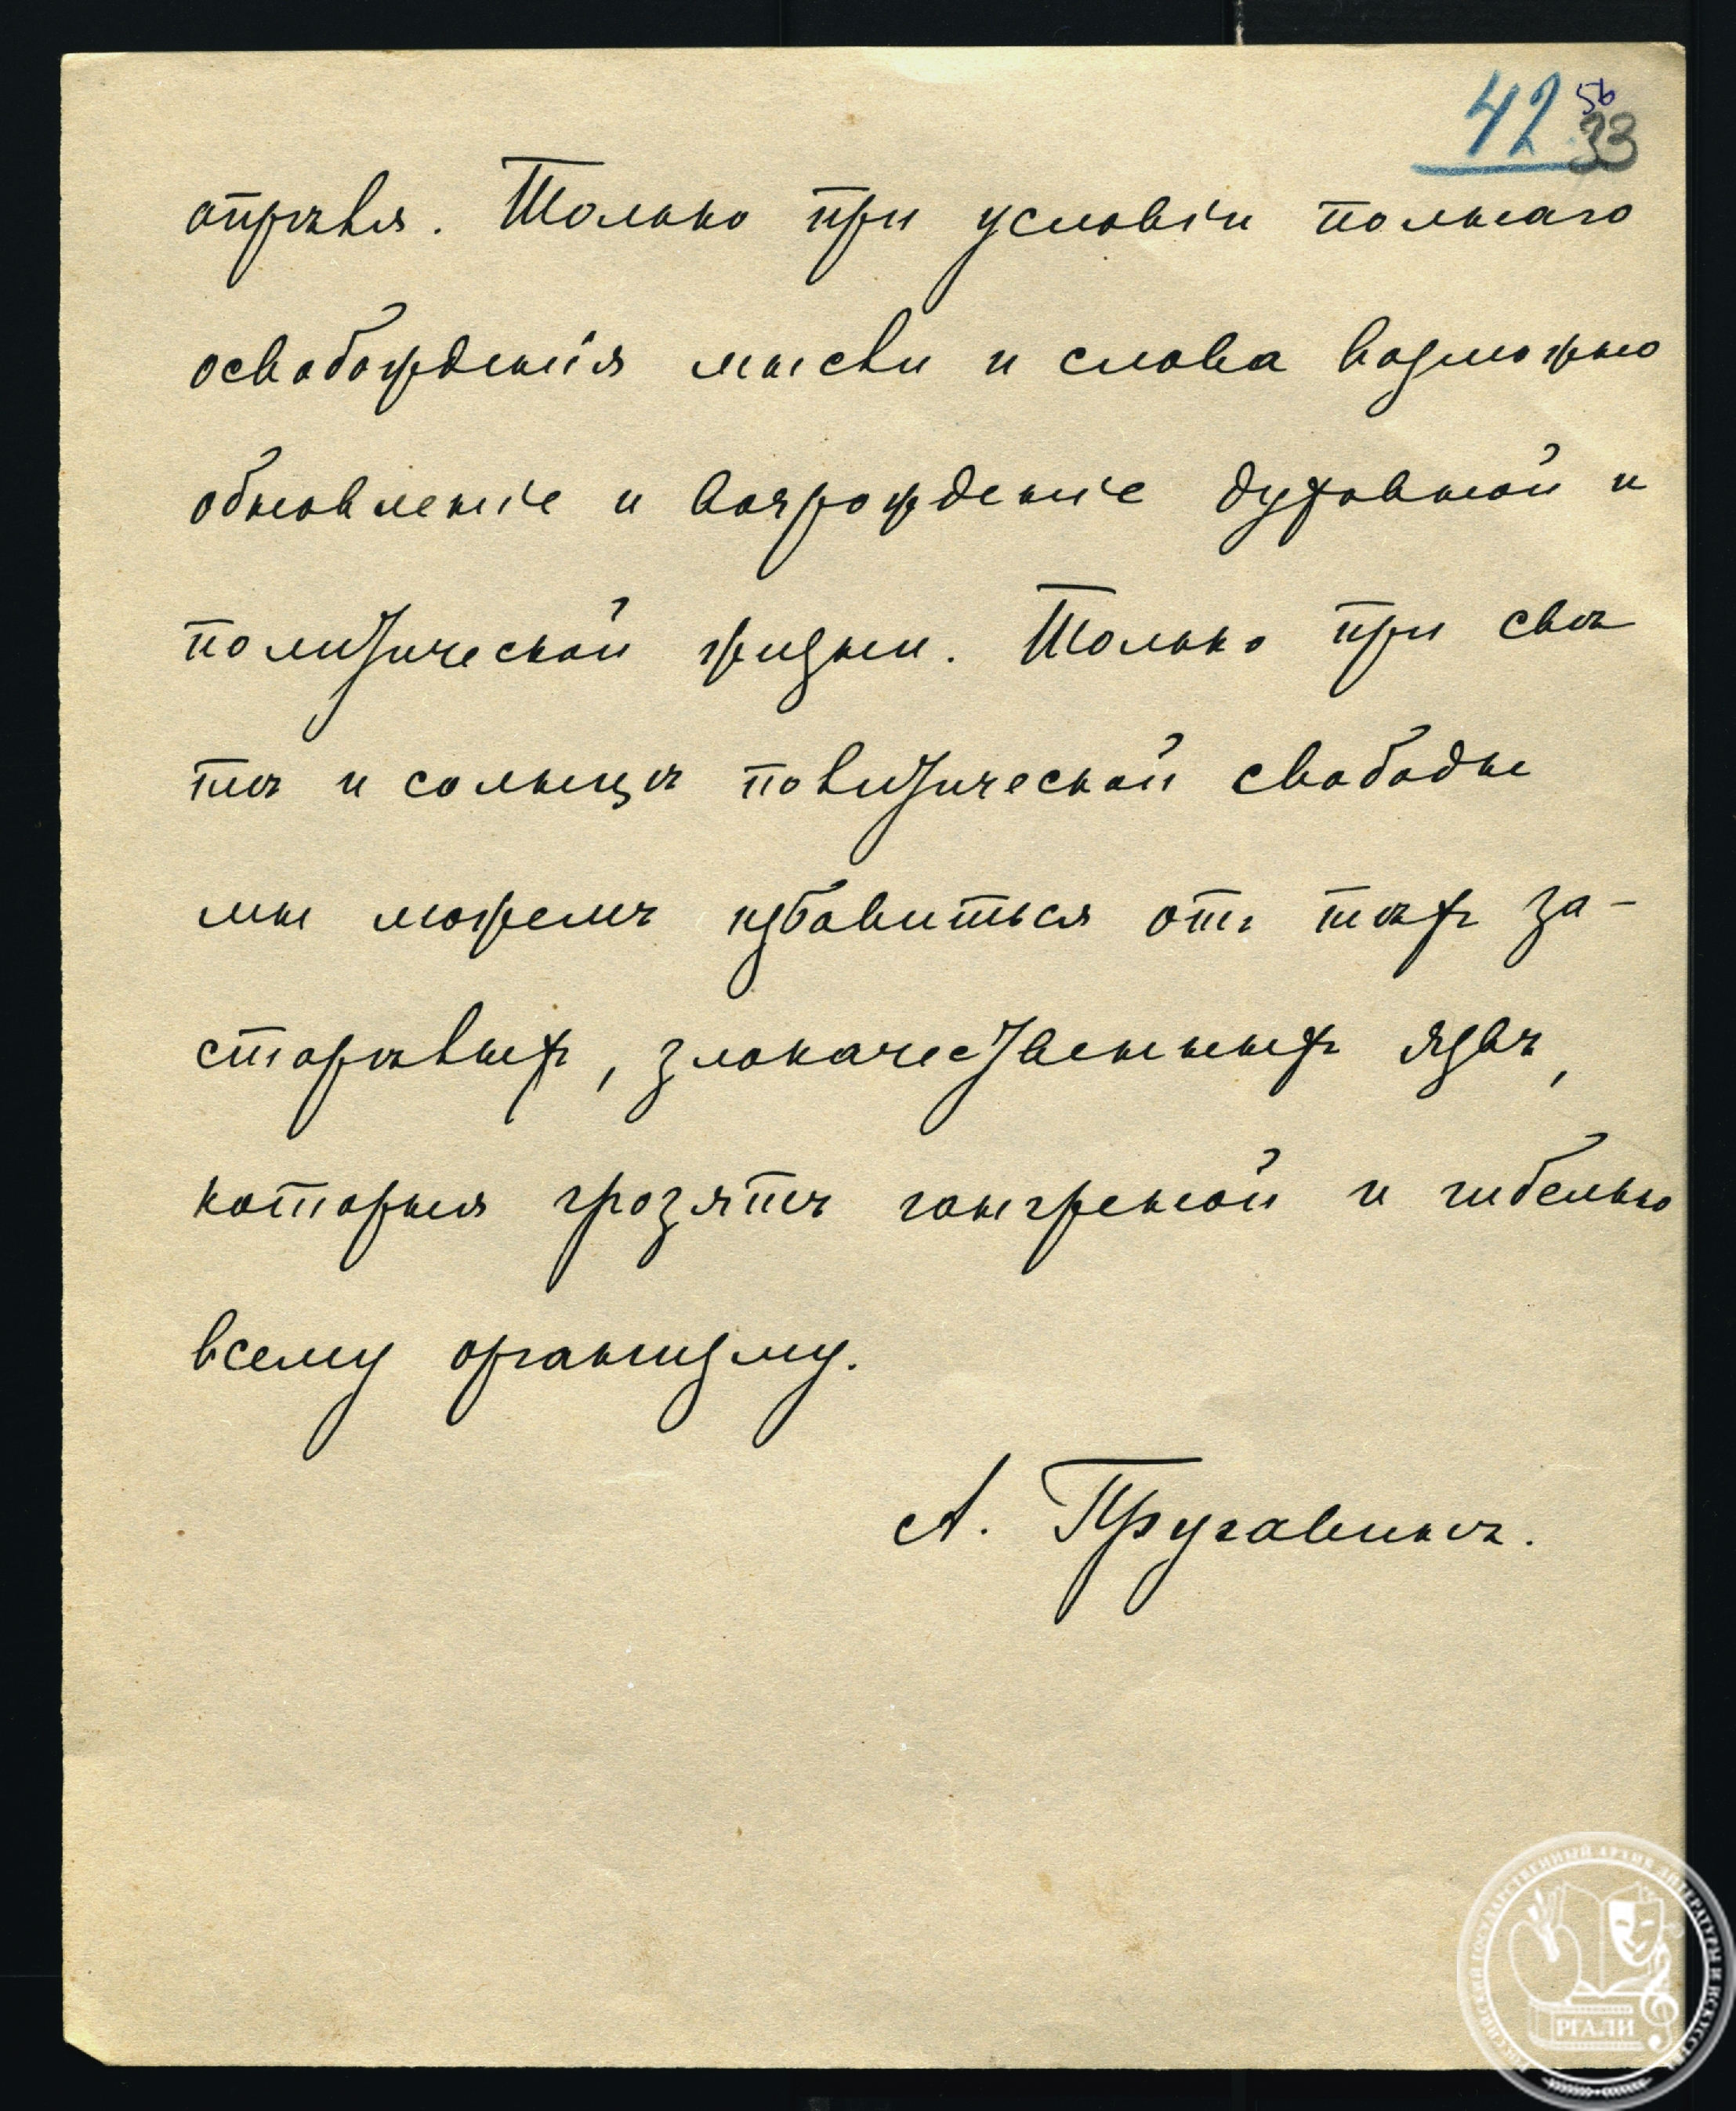 42 56
33
отравля. Только при условіи полнаго
освобожденія мысли и слова возможно
обновленіе и возрожденіе духовной и
политической жизни. Только при свѣ
тѣ и солнцѣ политической свободы
мы можемъ избавиться отъ тѣхъ за-
старѣвшихъ, злокачественныхъ язвъ,
которыя грозятъ гангреной и гибелью
всему организму.
А. Пругавинъ.
РОССИЙСКИЙ ГОСУДАРСТВЕННЫЙ АРХИВ ЛИТЕРАТУРЫ И ИСКУССТВА
РГАЛИ